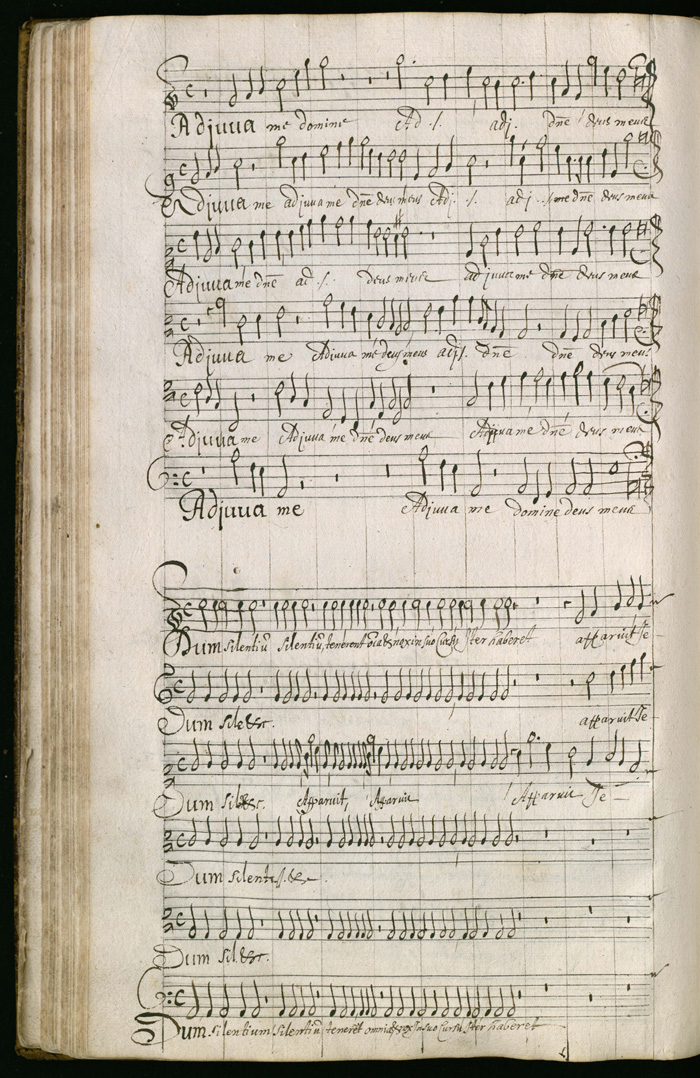 Adjuua me domine Ad ./. adj. dne deus meus
Adjuua me adjuua me dne deus meus Adj. ./. adj. ./. me dne deus meus
Adjuua me dne ad ./. deus meus adjuua me dne deus meus
Adjuua me Adjuua me deus meus adj ./. dne dne deus meus
Adjuua me Adjuua me dne deus meus Adjuua me dne deus meus
Adjuua me Adjuua me domine deus meus
Dum silentiu silentiu, tenerent oia & nox in suo cursu Iter haberet apparuit Je
Dum sil &c. apparuit Je
Dum sil &c. Apparuit, Aparuit Apparuit Je
Dum silenti ./. &c.
Dum sil. &c.
Dum silentium silentiu, teneret omnia & nox in suo cursu Iter haberet